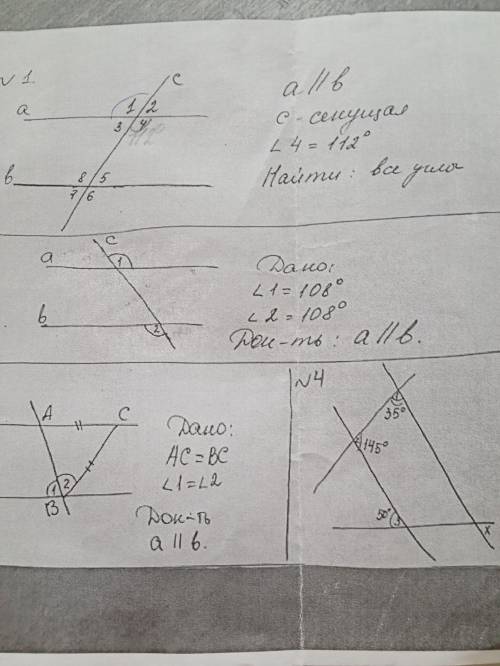 №1.
a
c
1 2
3 4
112°
b
8 5
7 6
a || b
c - секущая
∠4 = 112°
Найти: все углы
c
a
1
b
2
Дано:
∠1 = 108°
∠2 = 108°
Док-ть: a || b.
A C
1 2
B
Дано:
AC = BC
∠1 = ∠2
Док-ть
a || b.
№4
35°
145°
50°
3
x